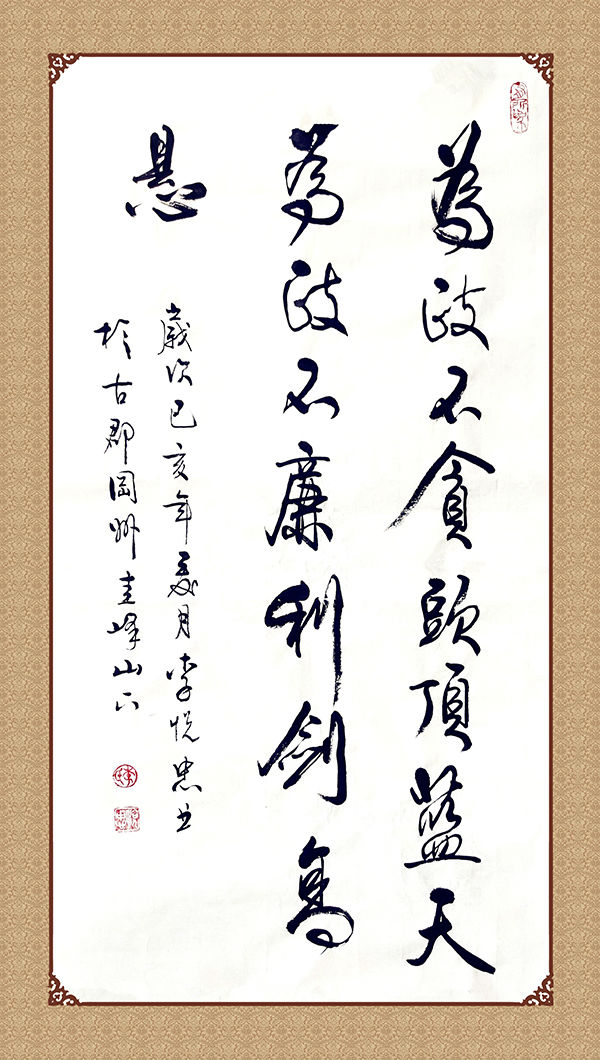 為政不貪頭頂藍天
為政不廉利劍高
悬
歲次己亥年夏月李悦忠书
於古郡岡州圭峰山下